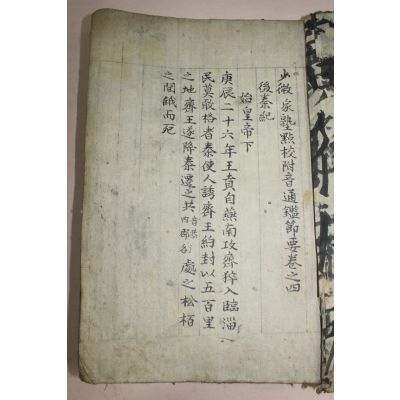 少微家塾點校附音通鑑節要卷之四
後秦紀
始皇帝下
庚辰二十六年王賁自燕南攻齊猝入臨淄
民莫敢格者秦使人誘齊王約封以五百里
之地齊王遂降秦遷之共音恭河內郡名處之松栢
之間餓而死